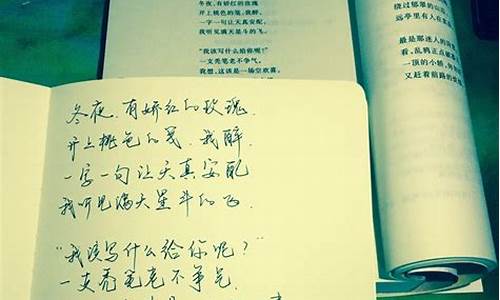 冬夜,有娇红的玫瑰
开上桃色的笺,我醉,
一字一句让天真安配,
我听见满天星斗的飞。
“我该写什么给你呢?”
一支秃笔老不争气,
我想,这该是一场空欢喜,
绕过郁翠的山
远亭里有人在
最是那迷人的
看,乱鸦正点破
一顶的小轿,
又赶着前路的
冬夜,有娇红的玫瑰,
开上桃色的笺,我醉,
一字一句让天真安配
我听见满天星斗的飞。
“我该写什么给你呢?”
一支秃笔老不争气,